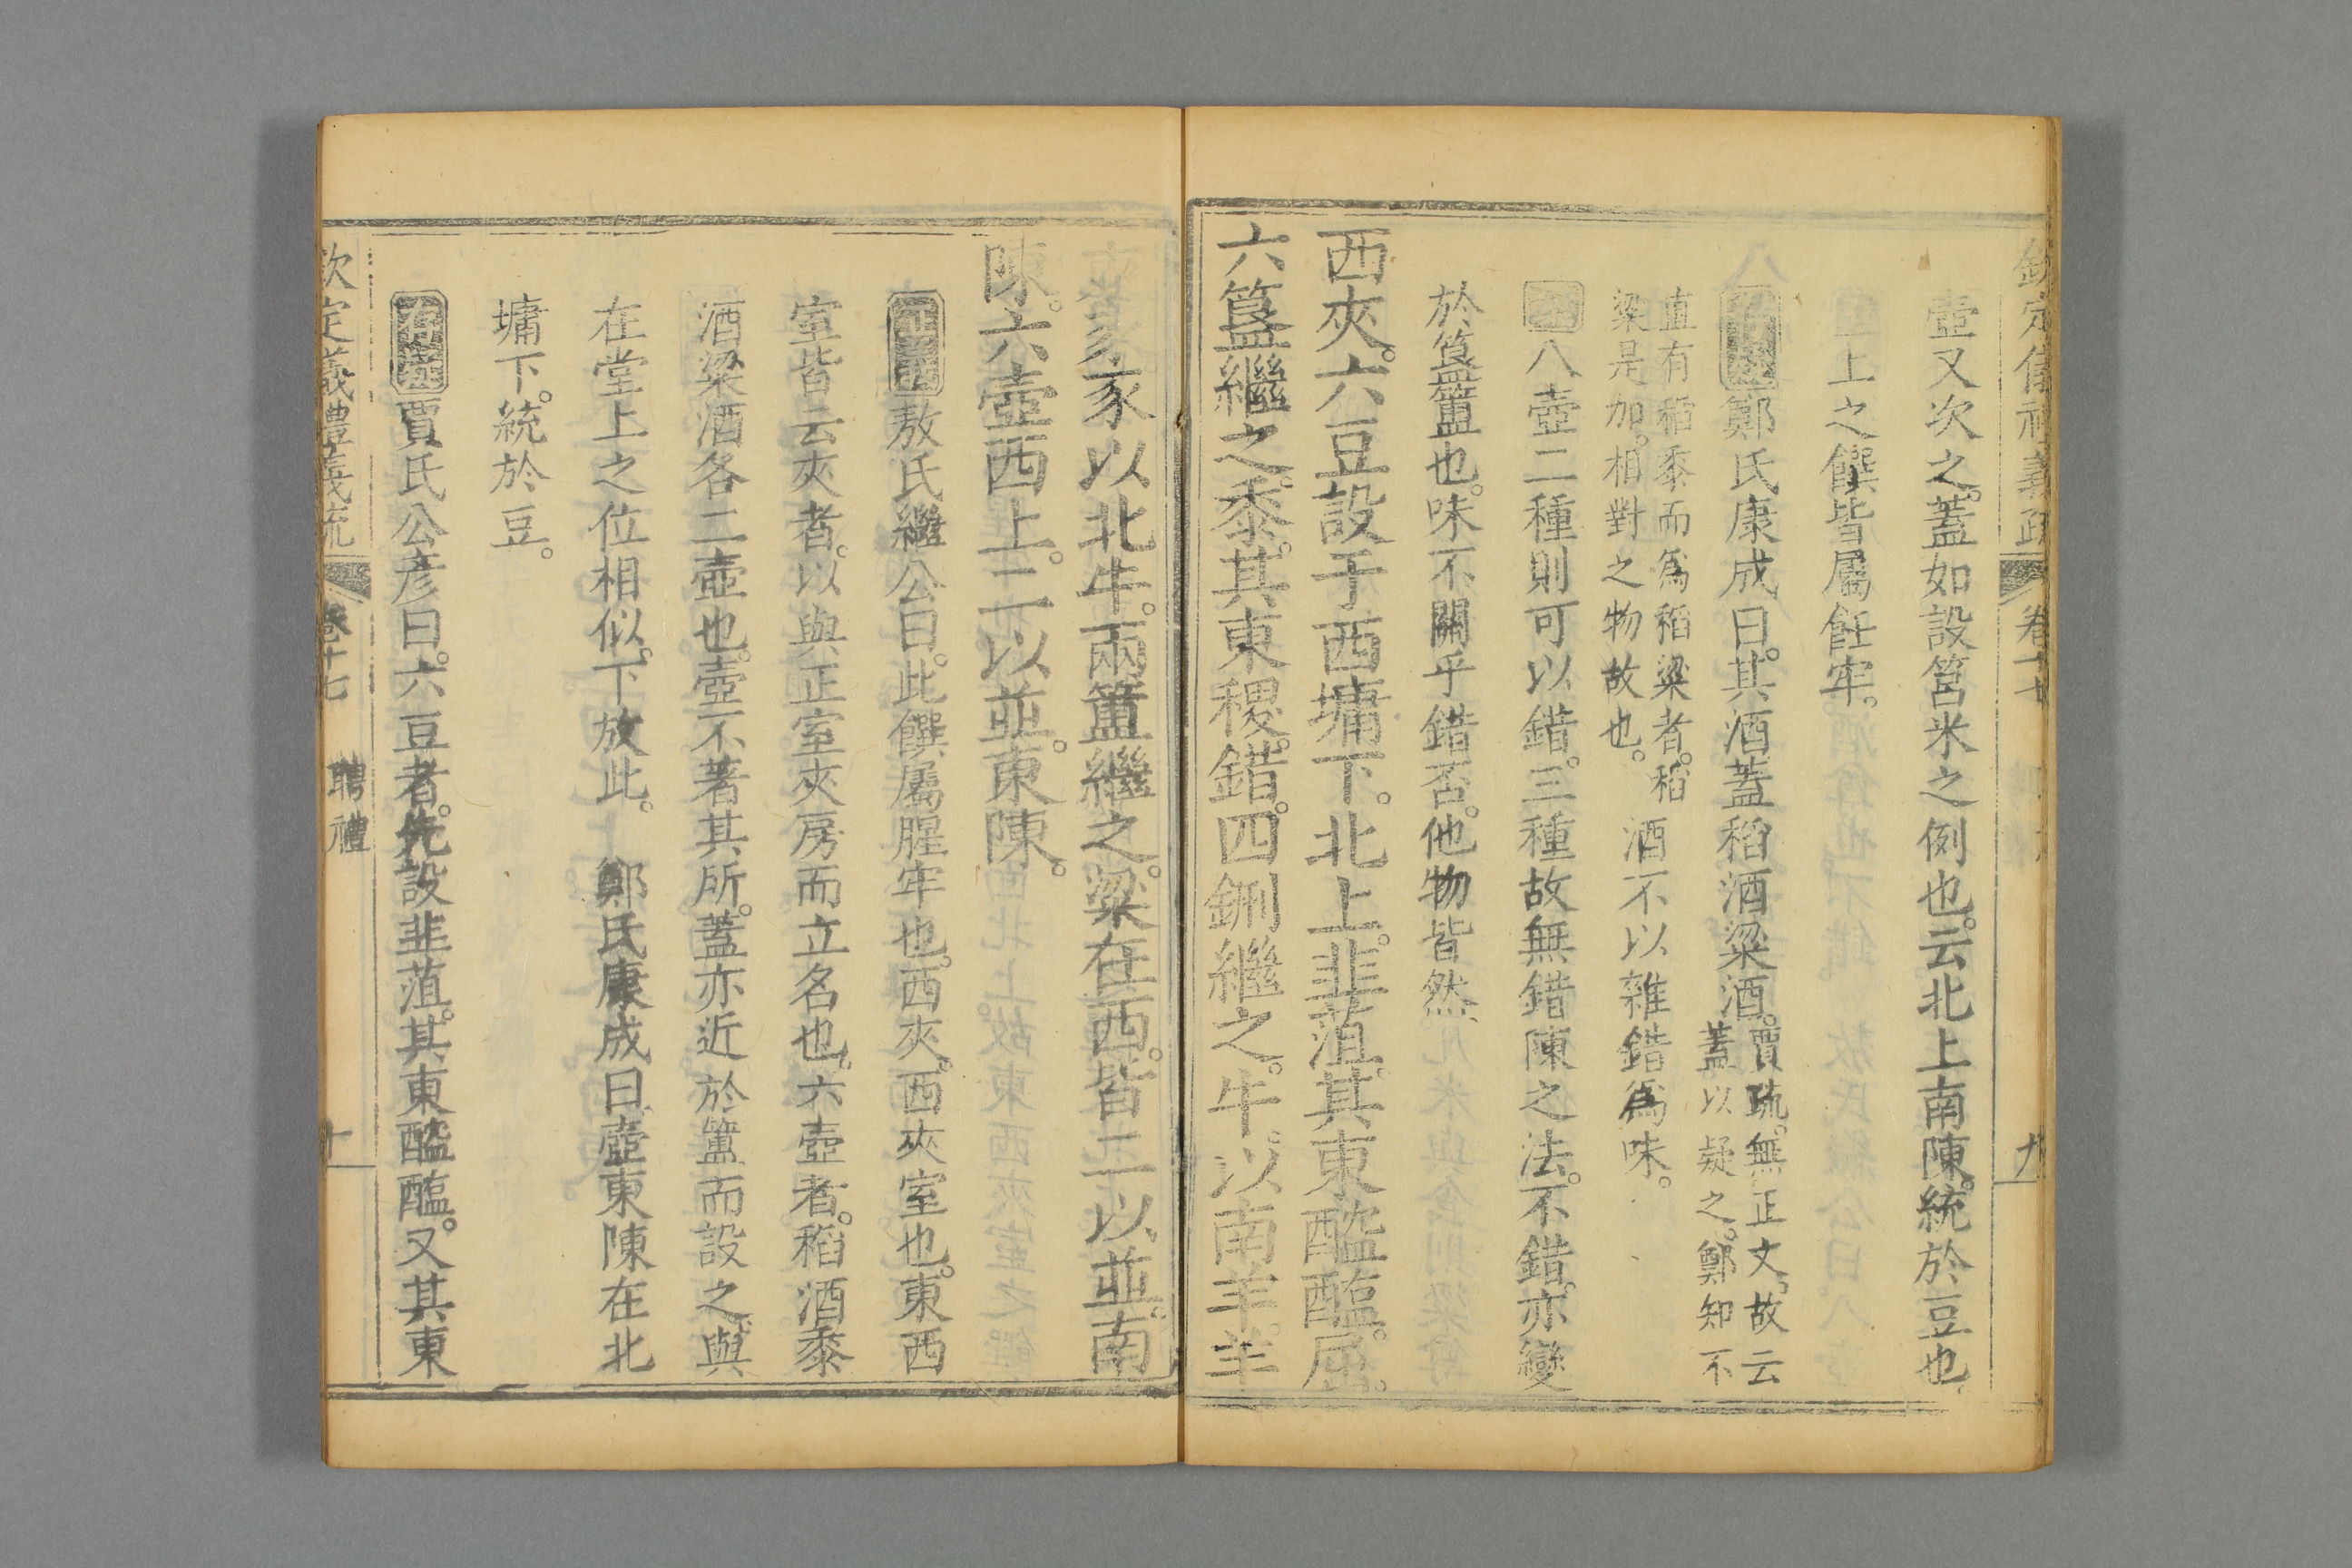 欽定儀禮義疏 卷十七 九
壺又次之。蓋如設筥米之例也。云北上南陳。統於豆也
上之饌皆屬飪牢。
鄭氏康成曰。其酒。蓋稻酒粱酒。賈疏。無正文。故云蓋以疑之。鄭知不
直有稻黍而爲稻粱者。稻粱是加。相對之物故也。酒不以雜錯爲味。
八壺二種則可以錯。三種故無錯陳之法。不錯。亦變
於簋簠也。味不關乎錯否。他物皆然。
西夾。六豆設于西墉下。北上。韭菹。其東醓醢。屈。
六簋繼之。黍。其東稷。錯。四鉶繼之。牛。以南羊。羊
東豕。豕以北牛。兩簠繼之。粱在西。皆二以並。南
陳。六壺西上。二以並。東陳。
正義敖氏繼公曰。此饌屬腥牢也。西夾。西夾室也。東西
室皆云夾者。以與正室夾房而立名也。六壺者。稻酒黍
酒粱酒各二壺也。壺不著其所。蓋亦近於簠而設之。與
在堂上之位相似。下放此。 鄭氏康成曰壺東陳在北
墉下。統於豆。
存疑賈氏公彥曰。六豆者。先設韭菹。其東醓醢。又其東
欽定儀禮義疏 卷十七 聘禮 十